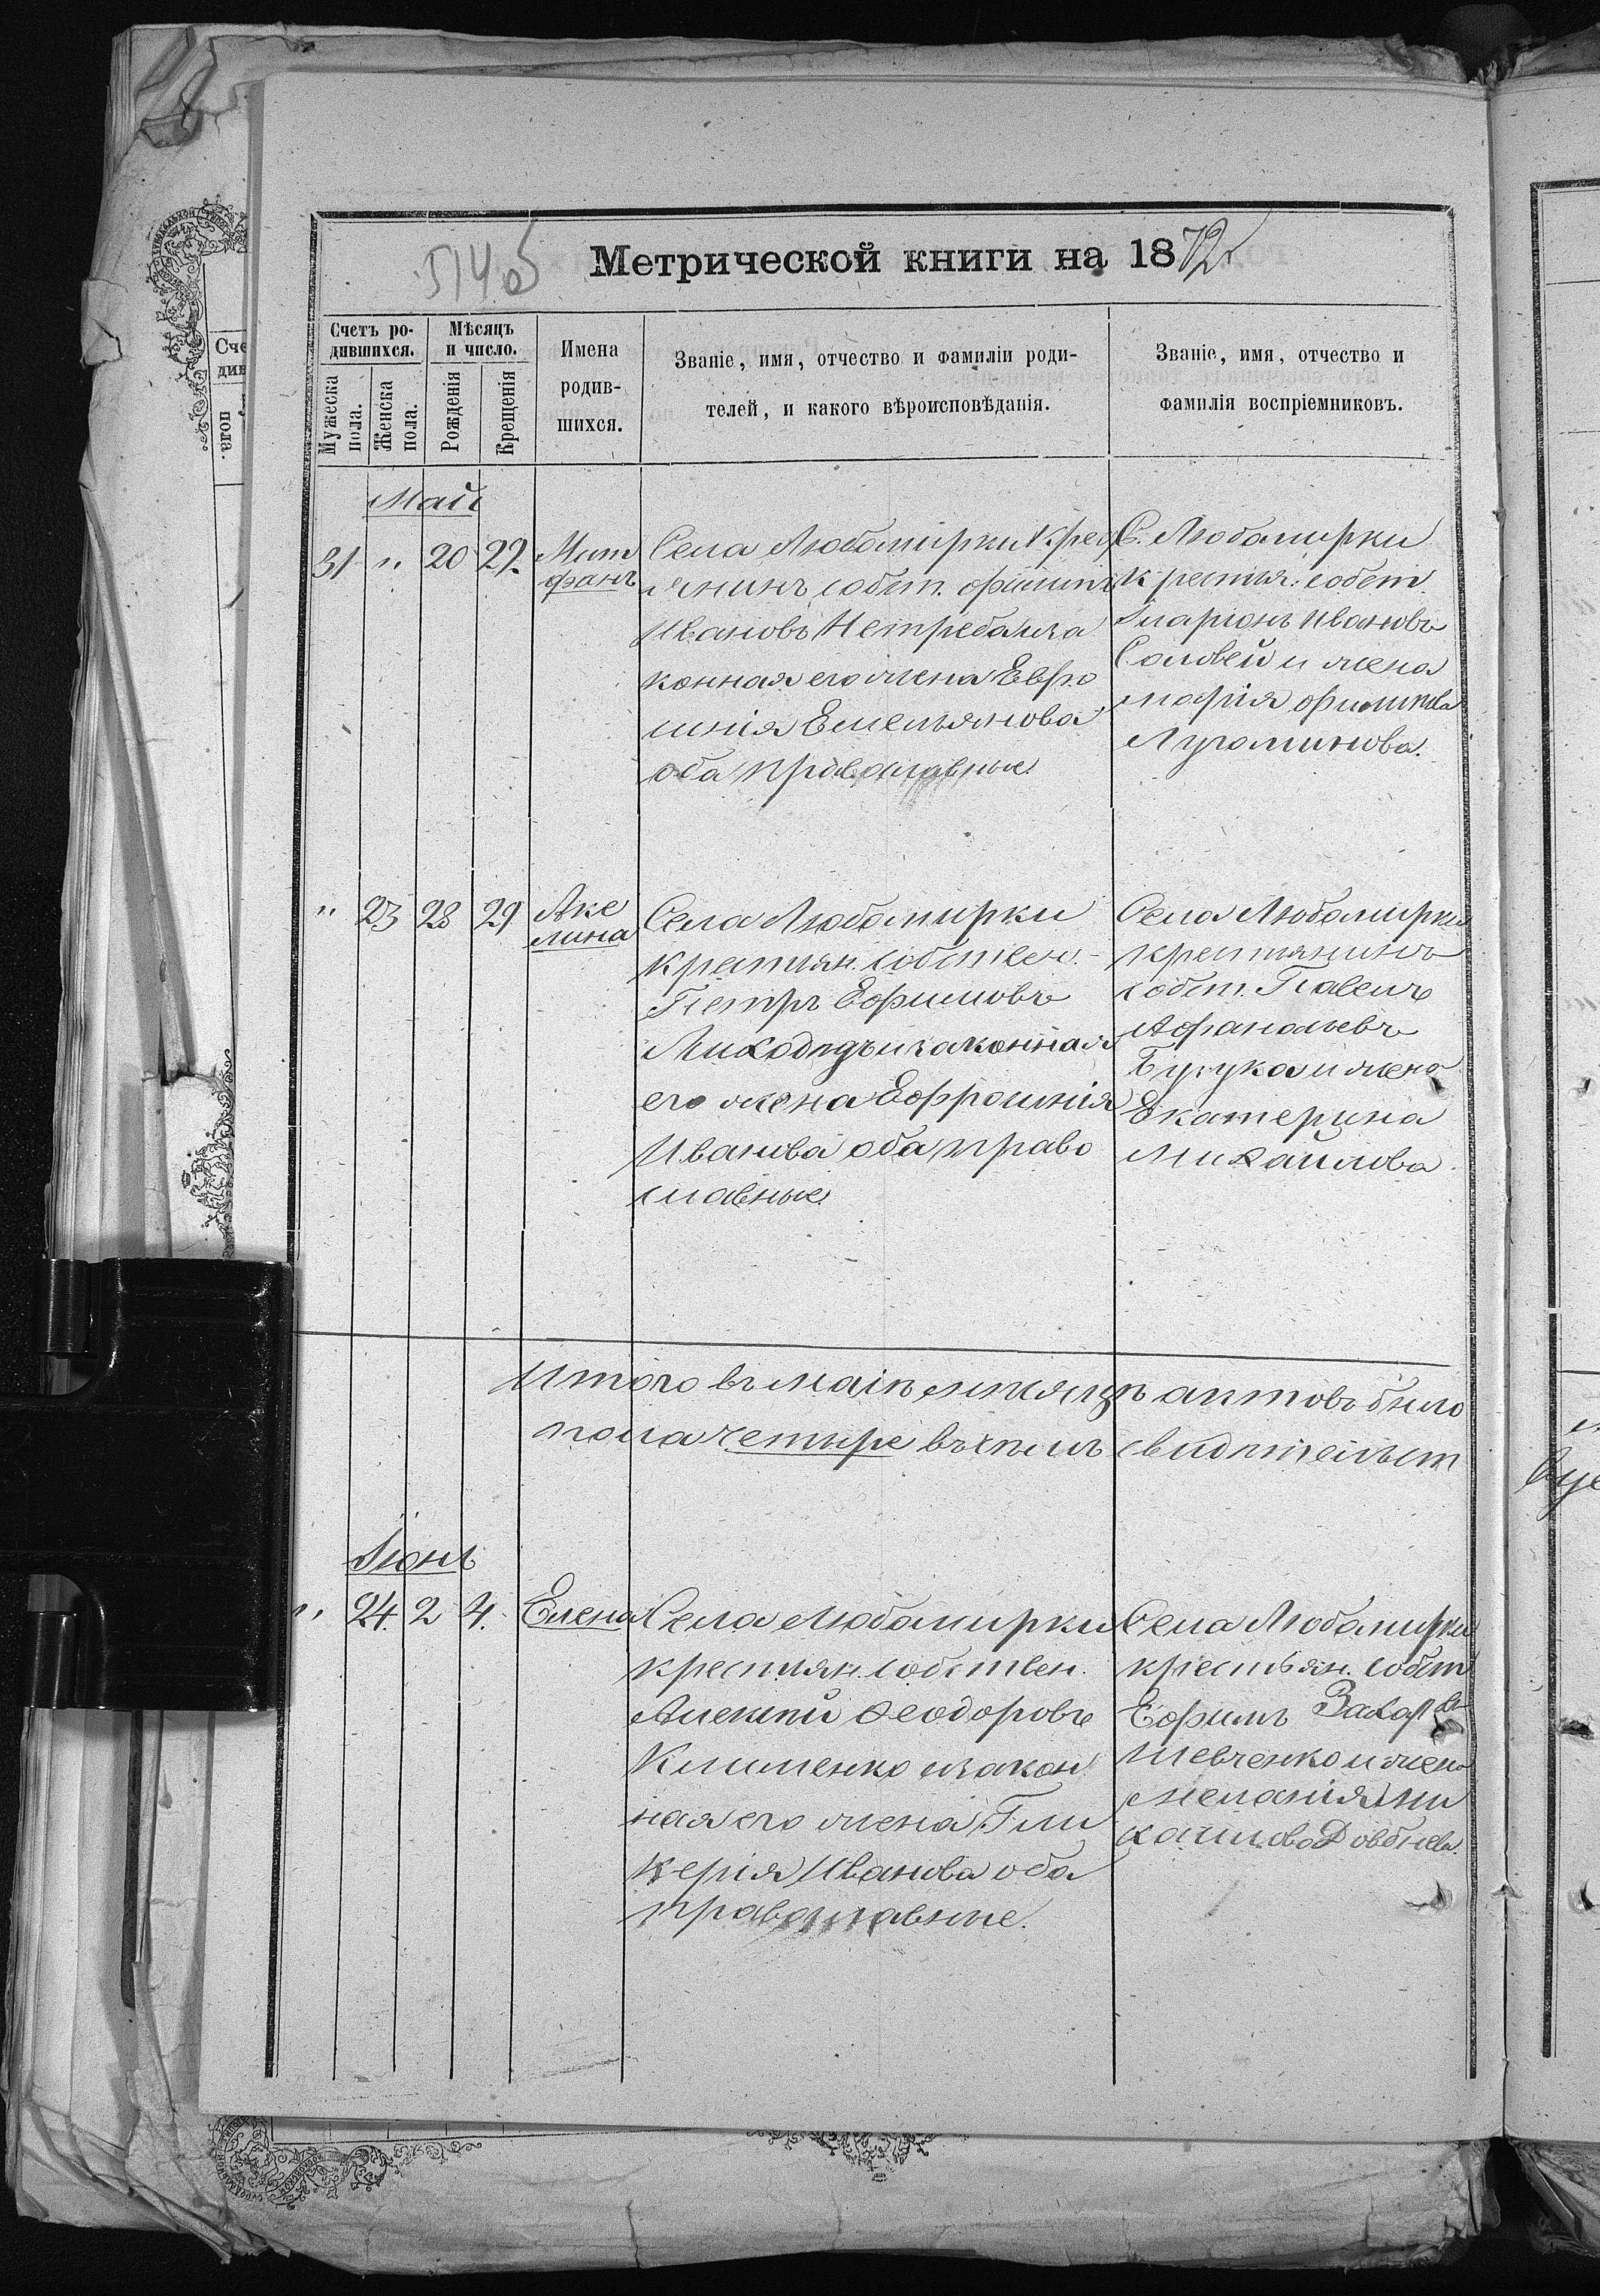 514 об
Метрической книги на 1872
Счетъ ро-
дившихся.
Мѣсяцъ
и число.
Имена
родив-
шихся.
Званіе, имя, отчество и фамиліи роди-
телей, и какого вѣроисповѣданія.
Званіе, имя, отчество и
фамилія воспріемниковъ.
Мужеска
пола.
Женска
пола.
Рожденія
Крещенія
Май
31 " 20 22.
Мит
фанъ
Села Любомирки Крес
янинъ собст. Филипъ
Ивановъ Нетреба и за
конная его жена Евфро
синія Емельянова
оба православные.
С. Любомирки
Крестья. собст.
Иларіонъ Ивановъ
Соловей и жена
Марія Филипова
" 23 28 29
Аке
лина
Села Любомирки
крестьян. собствен.
Петръ Ефимовъ
Лиходѣдъ и законная
его жена Ефросинія
Иванова оба право
славные.
Села Любомирки
крестьянинъ
собст. Павелъ
Афанасьевъ
и жена
Екатерина
Михайлова
Итого въ маіѣ мѣсяцѣ актовъ было
пола четыре въ чемъ свидѣтельст
Іюнь
" 24. 2 4.
Елена
Села Любомирки
крестьян. собствен.
Алексѣй Ѳеодоровъ
Клименко и закон
ная его жена Гли
керія Иванова оба
православные.
Села Любомирки
крестьян. собст
Ефимъ Захаровъ
Шевченко и жена
Меланія Ми
хайлова Довбнева.